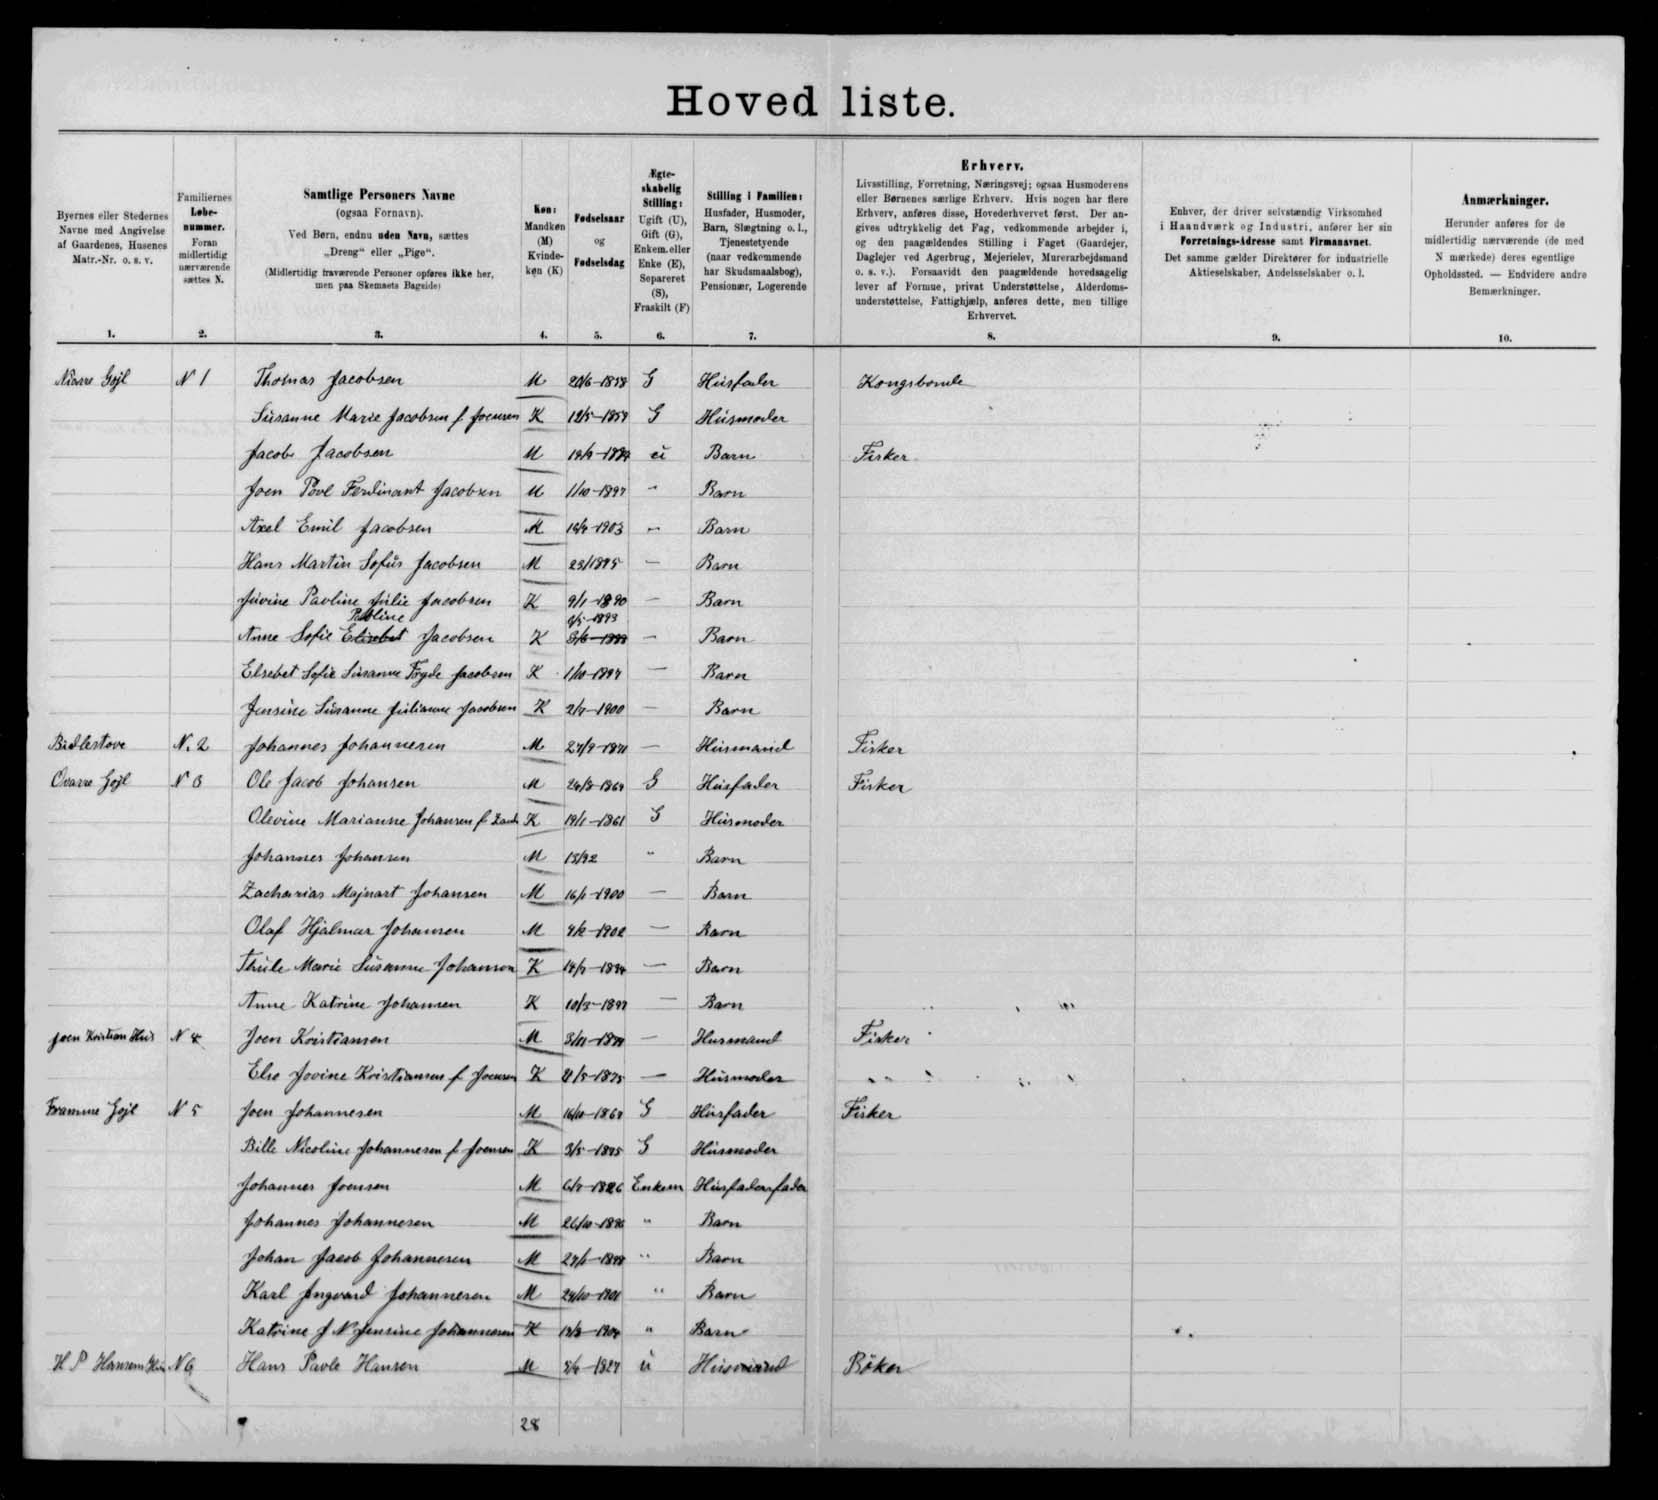 Hovedliste.
Byernes eller Stedernes
Navne med Angivelse
af Gaardenes, Husenes
Matr.-Nr. o. s. v.
1.
Familiernes
Løbe-
nummer.
Foran
midlertidig
nærværende
sættes N.
2.
Samtlige Personers Navne
(ogsaa Fornavn).
Ved Børn, endnu uden Navn, sættes
„Dreng“ eller „Pige“.
(Midlertidig fraværende Personer opføres ikke her,
men paa Skemaets Bagside)
3.
Køn:
Mandkøn
(M)
Kvinde-
køn (K)
4.
Fødselsaar
og
Fødselsdag
5.
Ægte-
skabelig
Stilling:
Ugift (U),
Gift (G),
Enkem. eller
Enke (E),
Separeret
(S),
Fraskilt (F)
6.
Stilling i Familien:
Husfader, Husmoder,
Barn, Slægtning o. l.,
Tjenestetyende
(naar vedkommende
har Skudsmaalsbog),
Pensionær, Logerende
7.
Erhverv.
Livsstilling, Forretning, Næringsvej; ogsaa Husmoderens
eller Børnenes særlige Erhverv. Hvis nogen har flere
Erhverv, anføres disse, Hovederhvervet først. Der an-
gives udtrykkelig det Fag, vedkommende arbejder i,
og den paagældendes Stilling i Faget (Gaardejer,
Daglejer ved Agerbrug, Mejerielev, Murerarbejdsmand
o. s. v.). Forsaavidt den paagældende hovedsagelig
lever af Formue, privat Understøttelse, Alderdoms-
understøttelse, Fattighjælp, anføres dette, men tillige
Erhvervet.
8.
Enhver, der driver selvstændig Virksomhed
i Haandværk og Industri, anfører her sin
Forretnings-Adresse samt Firmanavnet.
Det samme gælder Direktører for industrielle
Aktieselskaber, Andelsselskaber o. l.
9.
Anmærkninger.
Herunder anføres for de
midlertidig nærværende (de med
N mærkede) deres egentlige
Opholdssted. — Endvidere andre
Bemærkninger.
10.
Niarre Gojl N 1 Thomas Jacobsen M 20/6-1858 G Husfader Kongsbonde
Susanne Marie Jacobsen f. Joensen K 12/5-1859 G Husmoder
Jacob Jacobsen M u Barn Fisker
Joen Povl Ferdinant Jacobsen M 1/10-1897 " Barn
Axel Emil Jacobsen M 16/4-1903 " Barn
Hans Martin Sofus Jacobsen M 23/1895 — Barn
Juvine Pavline Julie Jacobsen K 9/1-1890 — Barn
Pauline 2/5-1893
Anne Sofie Elisebet Jacobsen K — Barn
Elsebet Sofie Susanne Fryde Jacobsen K 1/10-1897 — Barn
Jensine Susanne Julianne Jacobsen K 2/7-1900 — Barn
Budlestove N. 2 Johannes Johannesen M — Husmand Fisker
Ovarre Gojl N 3 Ole Jacob Johansen M G Husfader Fisker
Olevine Marianne Johansen f. K 19/1-1861 G Husmoder
Johannes Johansen M 13/92 " Barn
Zacharias Majnart Johansen M 16/1-1900 — Barn
Olaf Hjalmar Johansen M — Barn
Thule Marie Susanne Johansen K — Barn
Anne Katrine Johansen K 10/3-1897 — Barn
Joen Kristian Hus N 4 Joen Kristiansen M — Husmand Fisker
Else Jovine Kristiansen f. Joensen K — Husmoder
Framme Gojl N 5 Joen Johannesen M G Husfader Fisker
Bille Nicoline Johannesen f. Joensen K 3/5-1875 G Husmoder
Johannes Joensen M 6/7-1826 Enkem Husfadersfader
Johannes Johannesen M " Barn
Johan Jacob Johannesen M 27/1-1898 " Barn
Karl Jngvard Johannesen M 24/10-1901 " Barn
Katrine J N Jensine Johannesen K " Barn
H P Hansens Hus N 6 Hans Pavle Hansen M u Husmand Böker
28